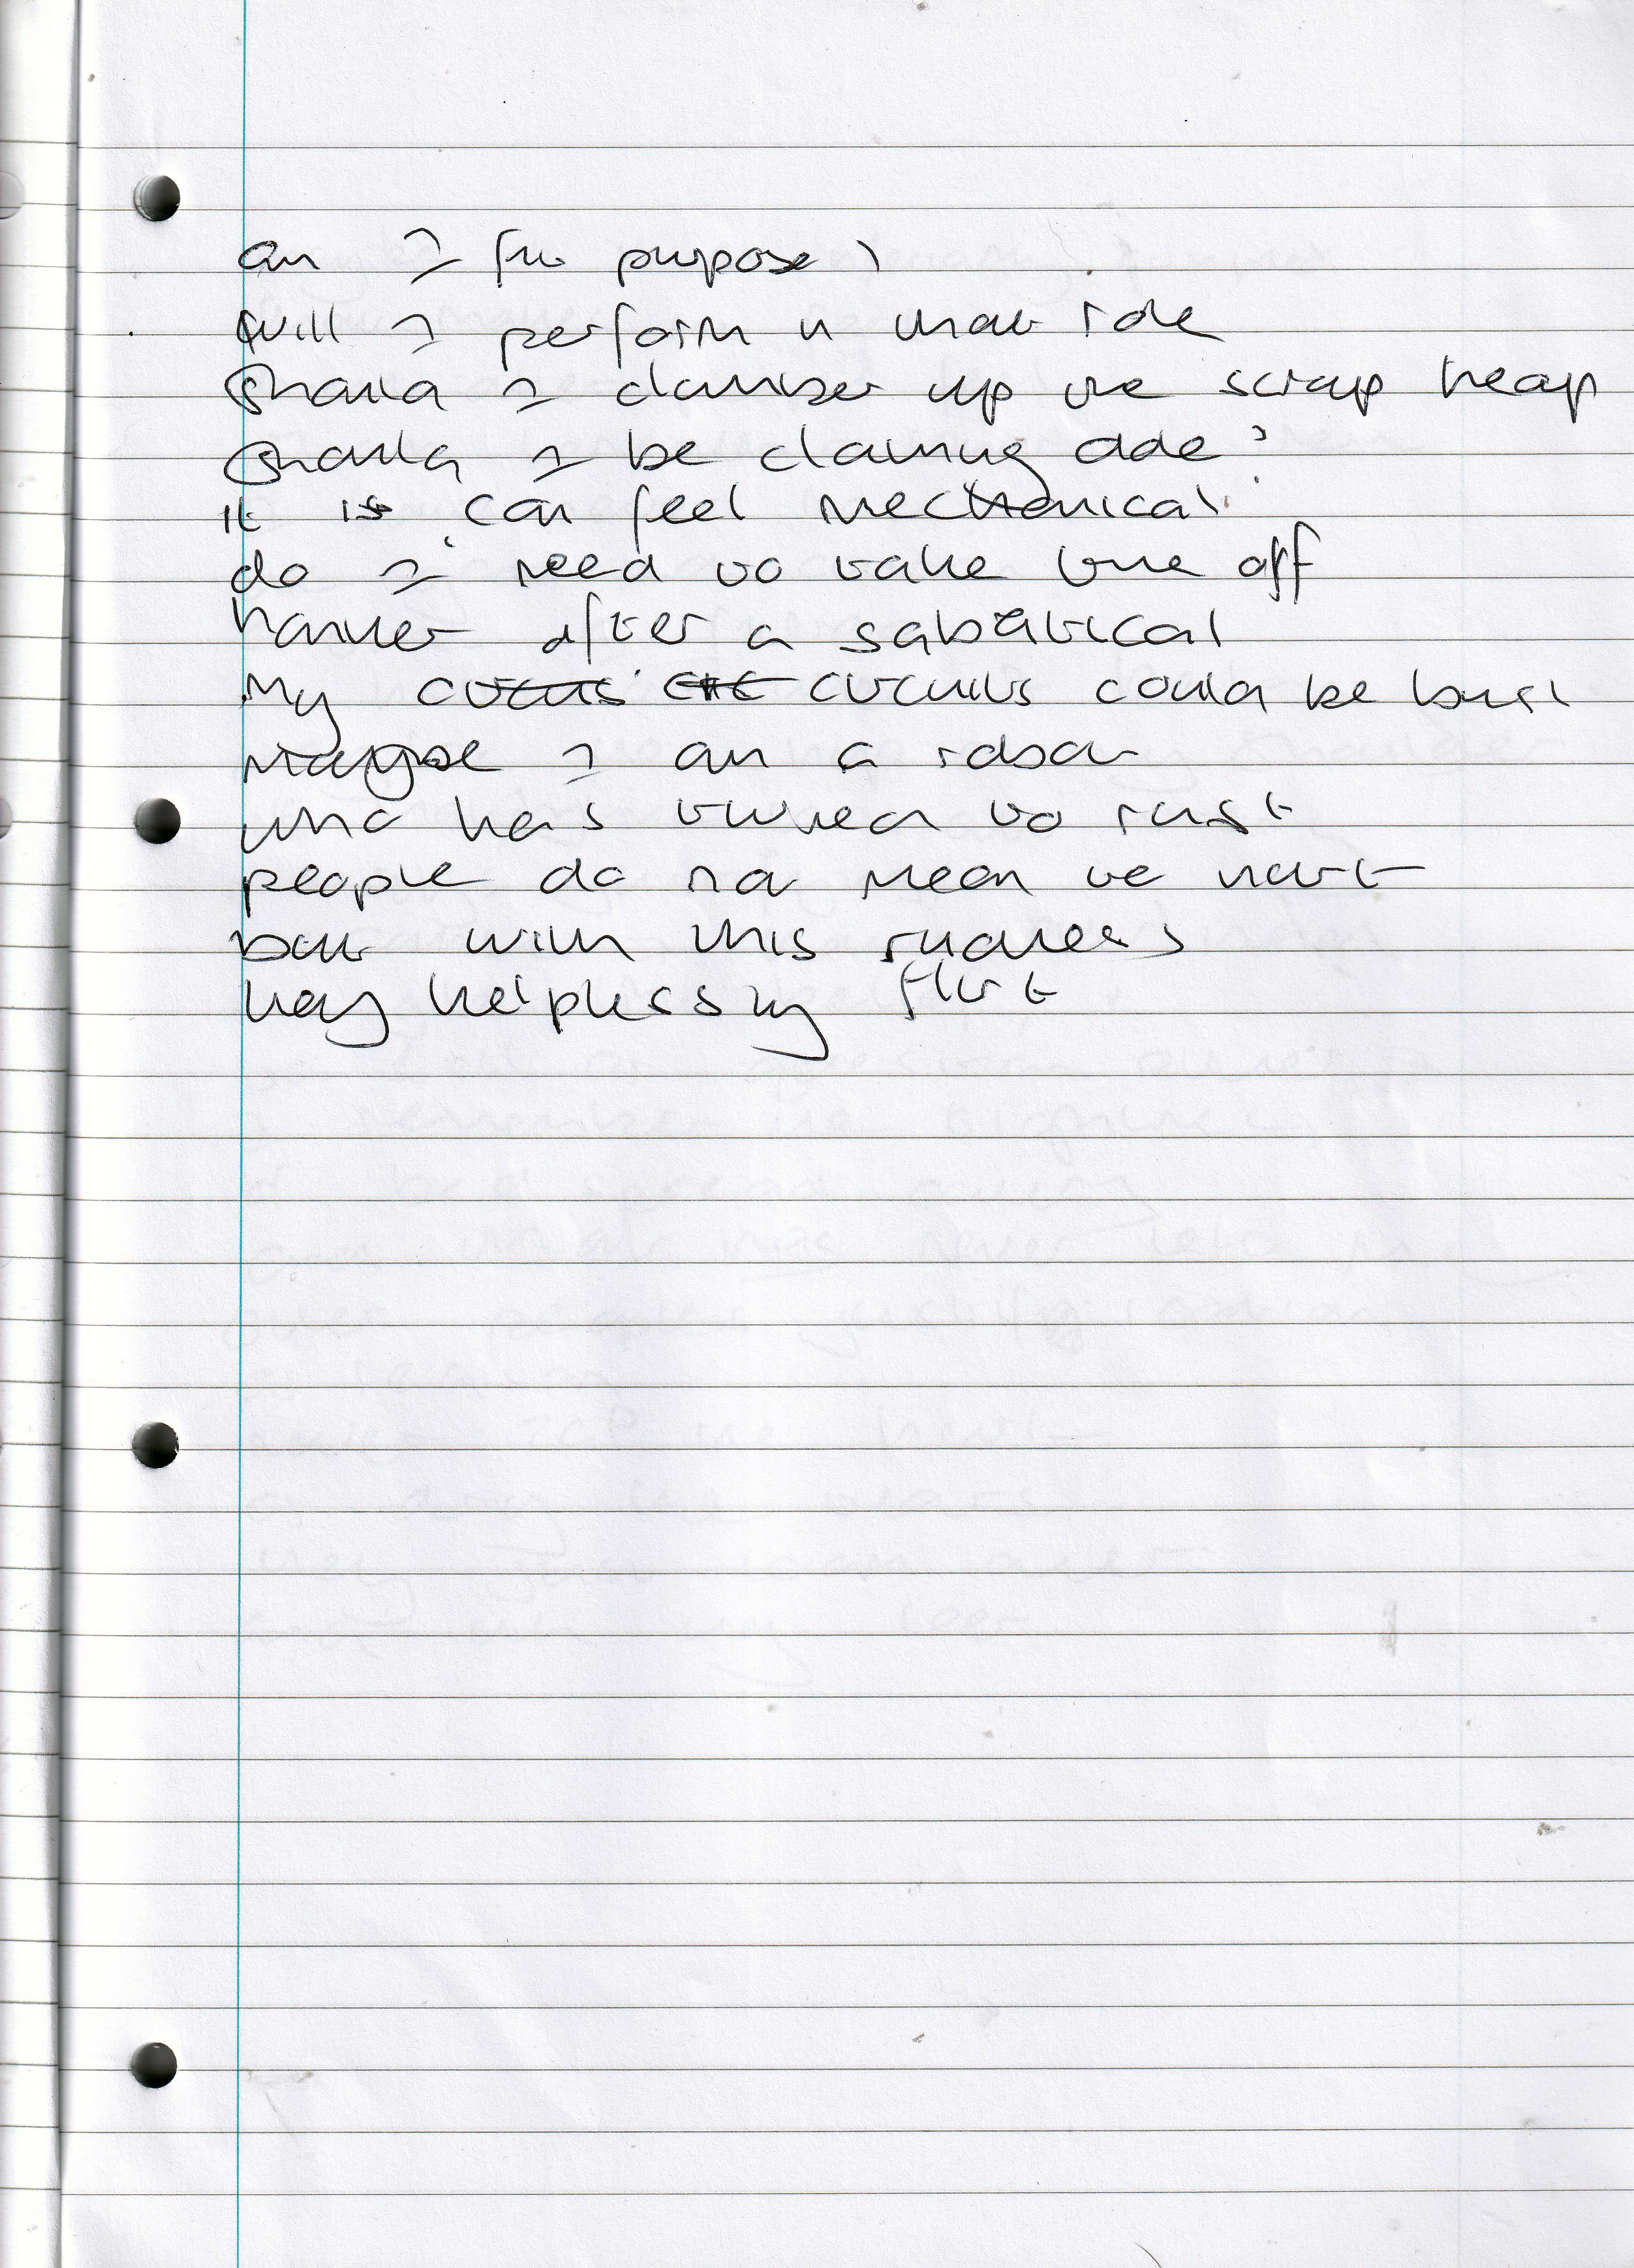 am I fit for purpose?
will I perform in that role
Should I clamber up the scrap heap
Should I be claiming dole?
it is can feel mechanical
do I need to take time off
harder after a sabbatical
My circuits circuits could be bust
Maybe I am a robot
who has turned to rust
people do not mean to hurt
but with this rudeness
they helplessly flirt